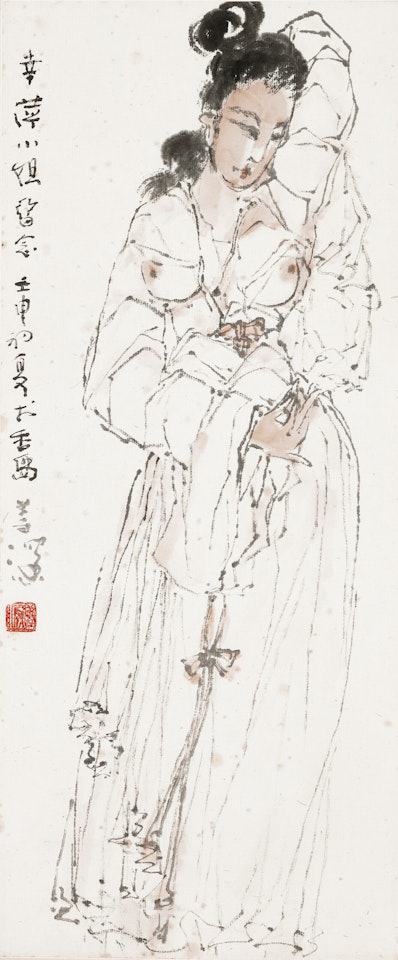 幸萍小姐留念 壬申初夏於香島